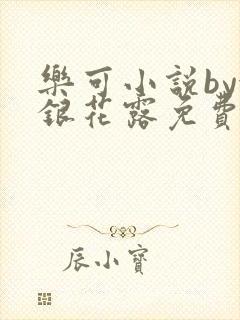 樂可小説by
銀花露免費
辰小寶